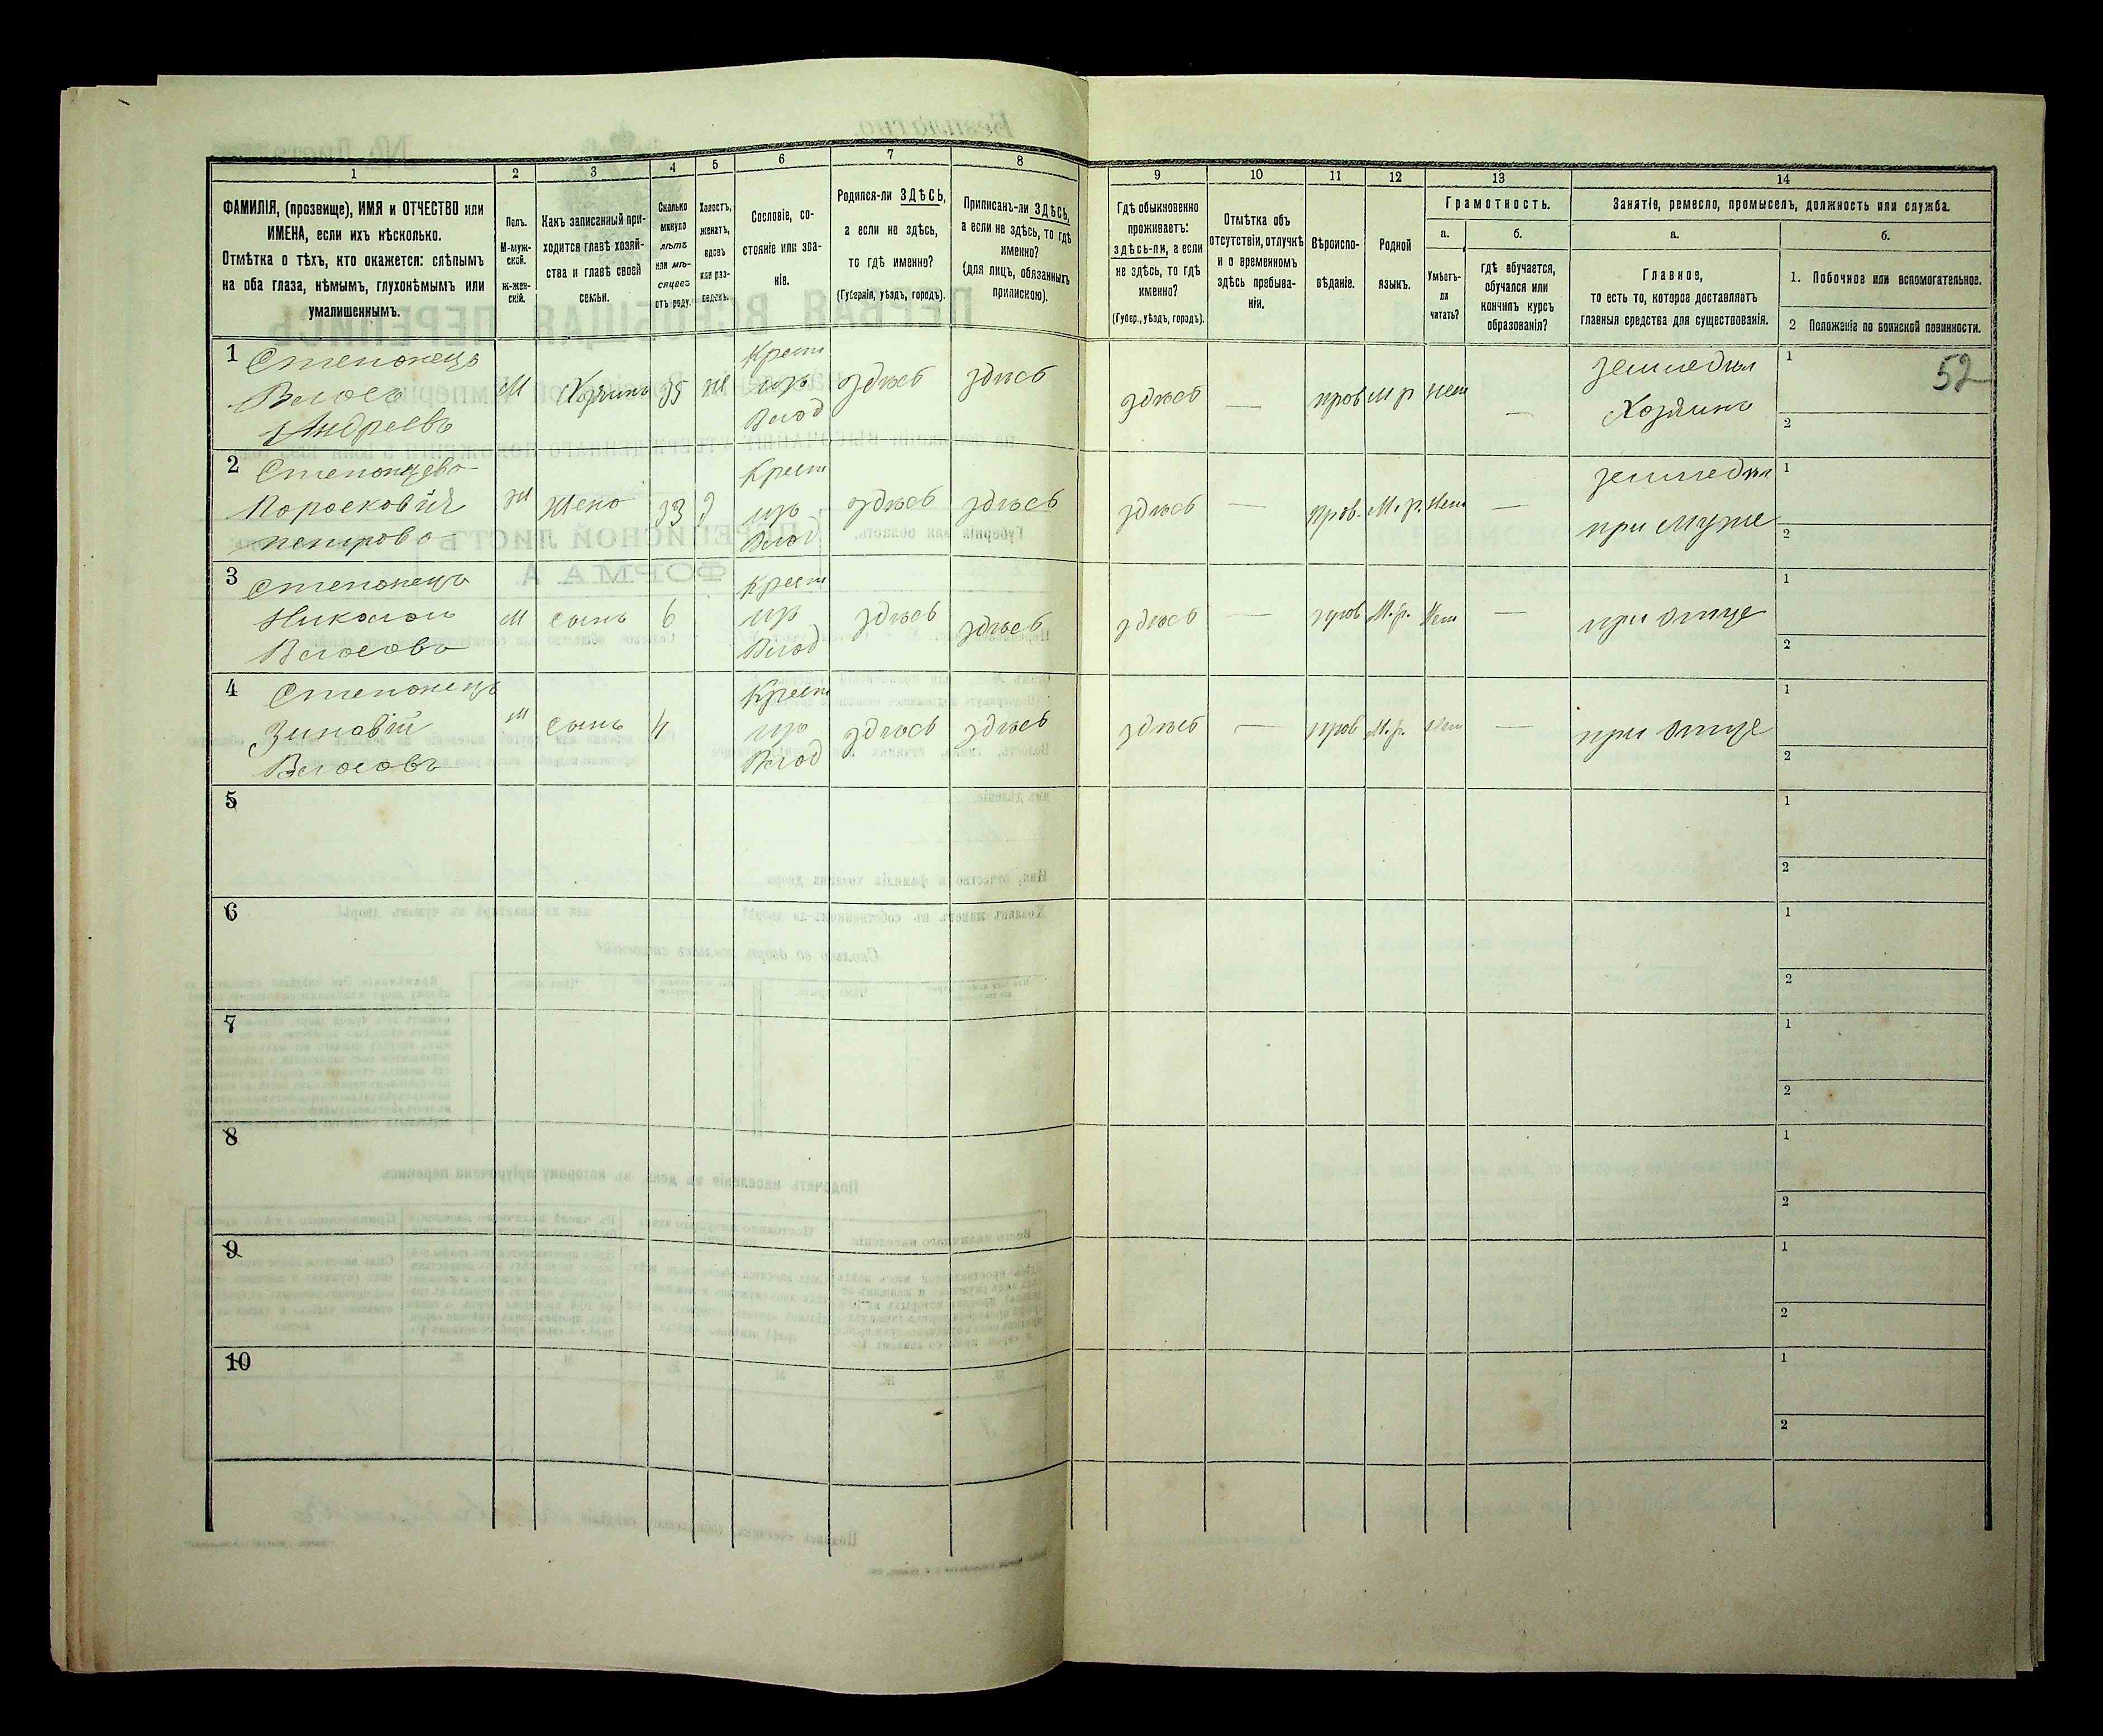 1
2
3
4
5
6
7
8
ФАМИЛІЯ, (прозвище), ИМЯ и ОТЧЕСТВО или
ИМЕНА, если ихъ нѣсколько.
Отмѣтка о тѣхъ, кто окажется: слѣпымъ
на оба глаза, нѣмымъ, глухонѣмымъ или
умалишеннымъ.
Полъ.
М-муж-
ской.
ж-жен-
скій.
Какъ записанный при-
ходится главѣ хозяй-
ства и главѣ своей
семьи.
Сколько
минуло
лѣтъ
или мѣ-
сяцевъ
отъ роду.
Холостъ,
женатъ,
вдовъ
или раз-
веденъ.
Сословіе, со-
стояніе или зва-
ніе.
Родился-ли ЗДѢСЬ,
а если не здѣсь,
то гдѣ именно?
(Губернія, уѣздъ, городъ).
Приписанъ-ли ЗДѢСЬ,
а если не здѣсь, то гдѣ
именно?
(для лицъ, обязанныхъ
припискою).
9
10
11
12
13
14
Гдѣ обыкновенно
проживаетъ:
здѣсь-ли, а если
не здѣсь, то гдѣ
именно?
(Губер., уѣздъ, городъ).
Отмѣтка объ
отсутствіи, отлучкѣ
и о временномъ
здѣсь пребыва-
ніи.
Вѣроиспо-
вѣданіе.
Родной
языкъ.
Грамотность.
а.
б.
Умѣетъ-
ли
читать?
гдѣ обучается,
обучался или
кончилъ курсъ
образованія?
Занятіе, ремесло, промыселъ, должность или служба.
а.
б.
Главное,
то есть то, которое доставляетъ
главныя средства для существованія.
1. Побочное или вспомогательное.
2 Положеніе по воинской повинности.
52
1 Степанецъ
Власъ
Андреевъ
М
Хозяинъ
35
ж
Крест
изъ
Влад
здѣсь
здѣсь
здѣсь
—
прав
м р
нет
—
земледѣл
Хозяинъ
1
2
2 Степанцева
Парасковія
петрова
Ж
жена
33
з
Крест
изъ
Влад
здѣсь
здѣсь
здѣсь
—
прав.
М. р.
Нет
—
земледѣл
при муже
1
2
3 Степанецъ
Николай
Власовъ
М
сынъ
6
Крест
изъ
Влад
здѣсь
здѣсь
здѣсь
—
прав
М. р.
Нет
—
при отце
1
2
4 Степанецъ
Зиновій
Власовъ
М
сынъ
4
Крест
изъ
Влад
здѣсь
здѣсь
здѣсь
—
прав
М. р.
Нет
—
при отце
1
2
5
1
2
6
1
2
7
1
2
8
1
2
9
1
2
10
1
2